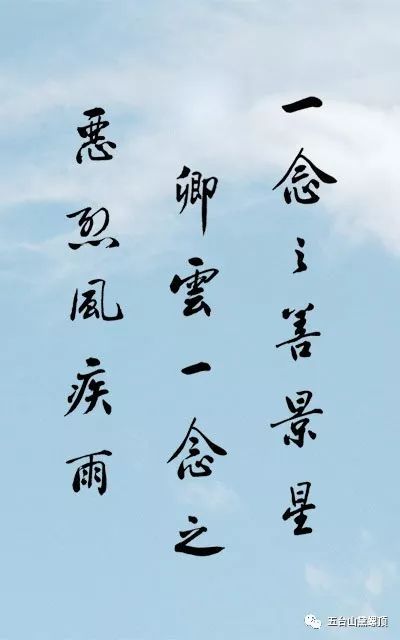 一念之善景星
卿雲一念之
惡烈風疾雨
五台山黛螺顶